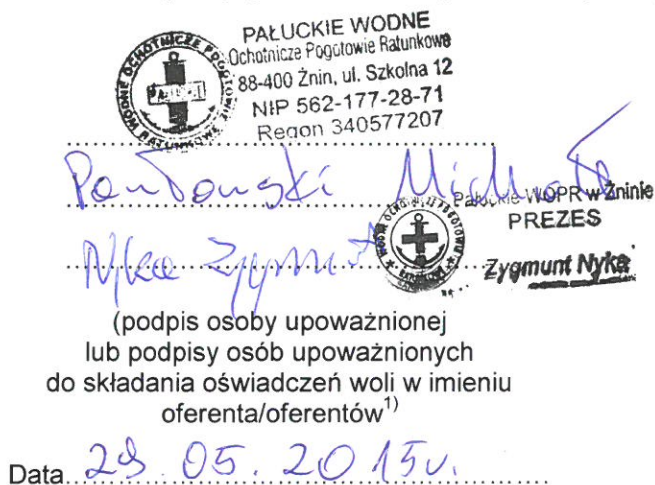 PAŁUCKIE WODNE
Ochotnicze Pogotowie Ratunkowe
88-400 Żnin, ul. Szkolna 12
NIP 562-177-28-71
Regon 340577207
WODNE OCHOTNICZE POGOTOWIE RATUNKOWE
Pawłowski Michał
Pałuckie WOPR w Żninie
PREZES
Nyka Zygmunt
Zygmunt Nyka
(podpis osoby upoważnionej
lub podpisy osób upoważnionych
do składania oświadczeń woli w imieniu
oferenta/oferentów1)
Data 29.05.2015r.